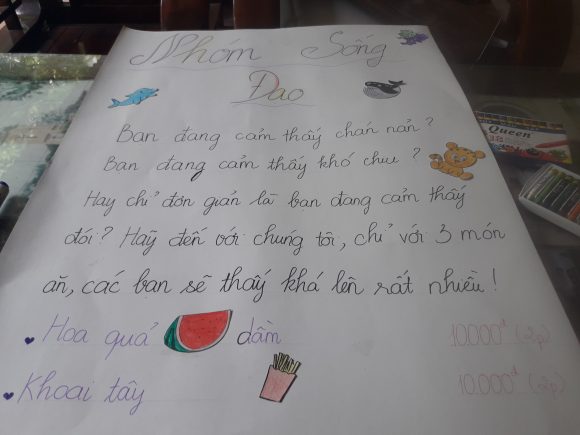 Nhóm Sống
Đao
Bạn đang cảm thấy chán nản?
Bạn đang cảm thấy khó chịu?
Hay chỉ đơn giản là bạn đang cảm thấy
đói? Hãy đến với chúng tôi, chỉ với 3 món
ăn, các bạn sẽ thấy khá lên rất nhiều!
Hoa quả dầm 10.000đ (2p)
Khoai tây 10.000đ (2p)
Queen